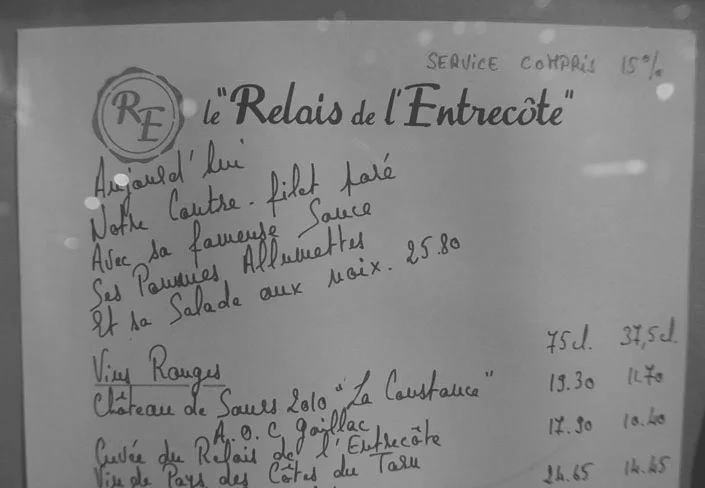 SERVICE COMPRIS 15%
RE
le "Relais de l'Entrecôte"
Aujourd'hui
Notre Contre-filet paré
Avec sa fameuse Sauce
Ses Pommes Allumettes
Et sa Salade aux noix. 25.80
75cl. 37,5cl.
Vins Rouges
Château de Saurs 2010 "La Constance" 19.30 11.70
A.O.C Gaillac
Cuvée du Relais de l'Entrecôte 17.90 10.40
Vin de Pays des Côtes du Tarn
24.65 14.45